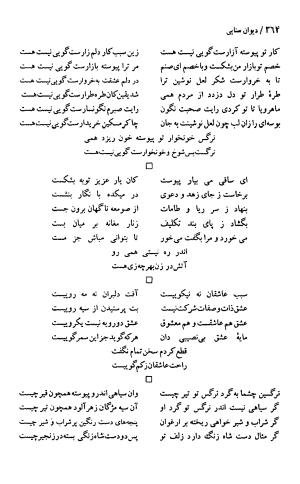 ۳۶۴ / دیوان سنایی
کار تو پیوسته آزارست گویی نیست هست
زین سبب کار دلم زارست گویی نیست هست
خصم تو بازار من بشکست و با خصم ای صنم
مر ترا پیوسته بازارست گویی نیست هست
تا به خروارست شکر لعل نوشین ترا
در دلم عشقت به خروارست گویی نیست هست
طرهٔ طرار تو دل دزدد از مردم همی
شد یقین کان طره طرارست گویی نیست هست
ماهرویا تا تو کردی رایت صحبت نگون
رایت صبرم نگونسارست گویی نیست هست
بوسه‌ای را زان لب چون لعل نوشینت به جان
چاکر مسکین خریدارست گویی نیست هست
نرگس خونخوار تو پیوسته خون ریزد همی
نرگس بس شوخ و خونخوارست گویی نیست هست
ای ساقی می بیار پیوست
کان یار عزیز توبه بشکست
برخاست ز جای زهد و دعوی
در میکده با نگار بنشست
بنهاد ز سر ریا و طامات
از صومعه ناگهان برون جست
بگشاد ز پای بند تکلیف
زنار مغانه بر میان بست
می خورد و مرا بگفت می خور
تا بتوانی مباش جز مست
اندر ره نیستی همی رو
آتش در زن بهر چه زی هست
سبب عاشقان نه نیکوییست
آفت دلبران نه مه روییست
عشق ذات و صفات شرکت نیست
بت پرستیدن از سیه روییست
عشق هم عاشقست و هم معشوق
عشق دورویه نیست یکروییست
مایهٔ عشق بی‌نصیبی دان
هر که گوید جز این سمرگوییست
قطع کردم سخن تمام نگفت
راحت عاشقان کم گوییست
نرگسین چشما به گرد نرگس تو تیر چیست
وان سیاهی اندرو پیوسته همچون قیر چیست
گر سیاهی نیست اندر نرگس تو گرد او
آن سیه مژگان زهرآلود همچون تیر چیست
گر شراب و شیر خواهی ریخته بر ارغوان
پنجه‌های دست رنگین پر شراب و شیر چیست
گر مثال دست شاه زنگ دارد زلف تو
پس دو دست شاه زنگی بسته در زنجیر چیست